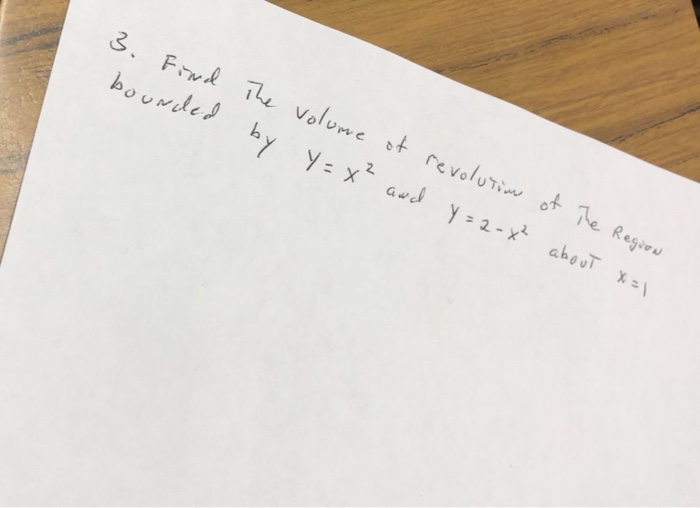 3. Find The volume of revolution of The Region
bounded by y = x² and y = 2-x² about x=1